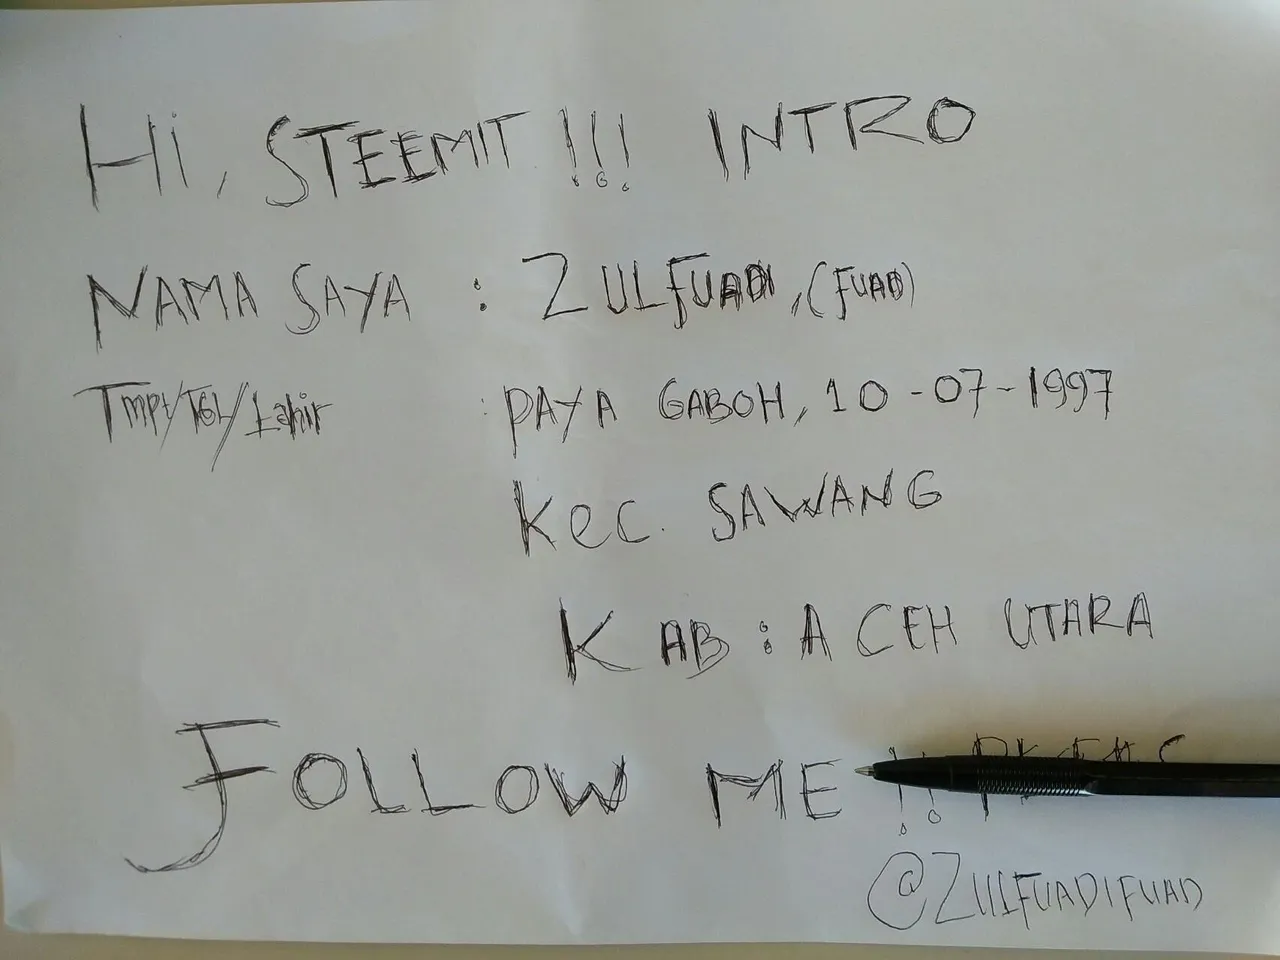 Hi, STEEMIT !!! INTRO
NAMA SAYA : ZULFUADI, (FUAD)
Tmpt/TGL/Lahir : PAYA GABOH, 10-07-1997
Kec. SAWANG
KAB : ACEH UTARA
FOLLOW ME !!
@ZULFUADIFUAD